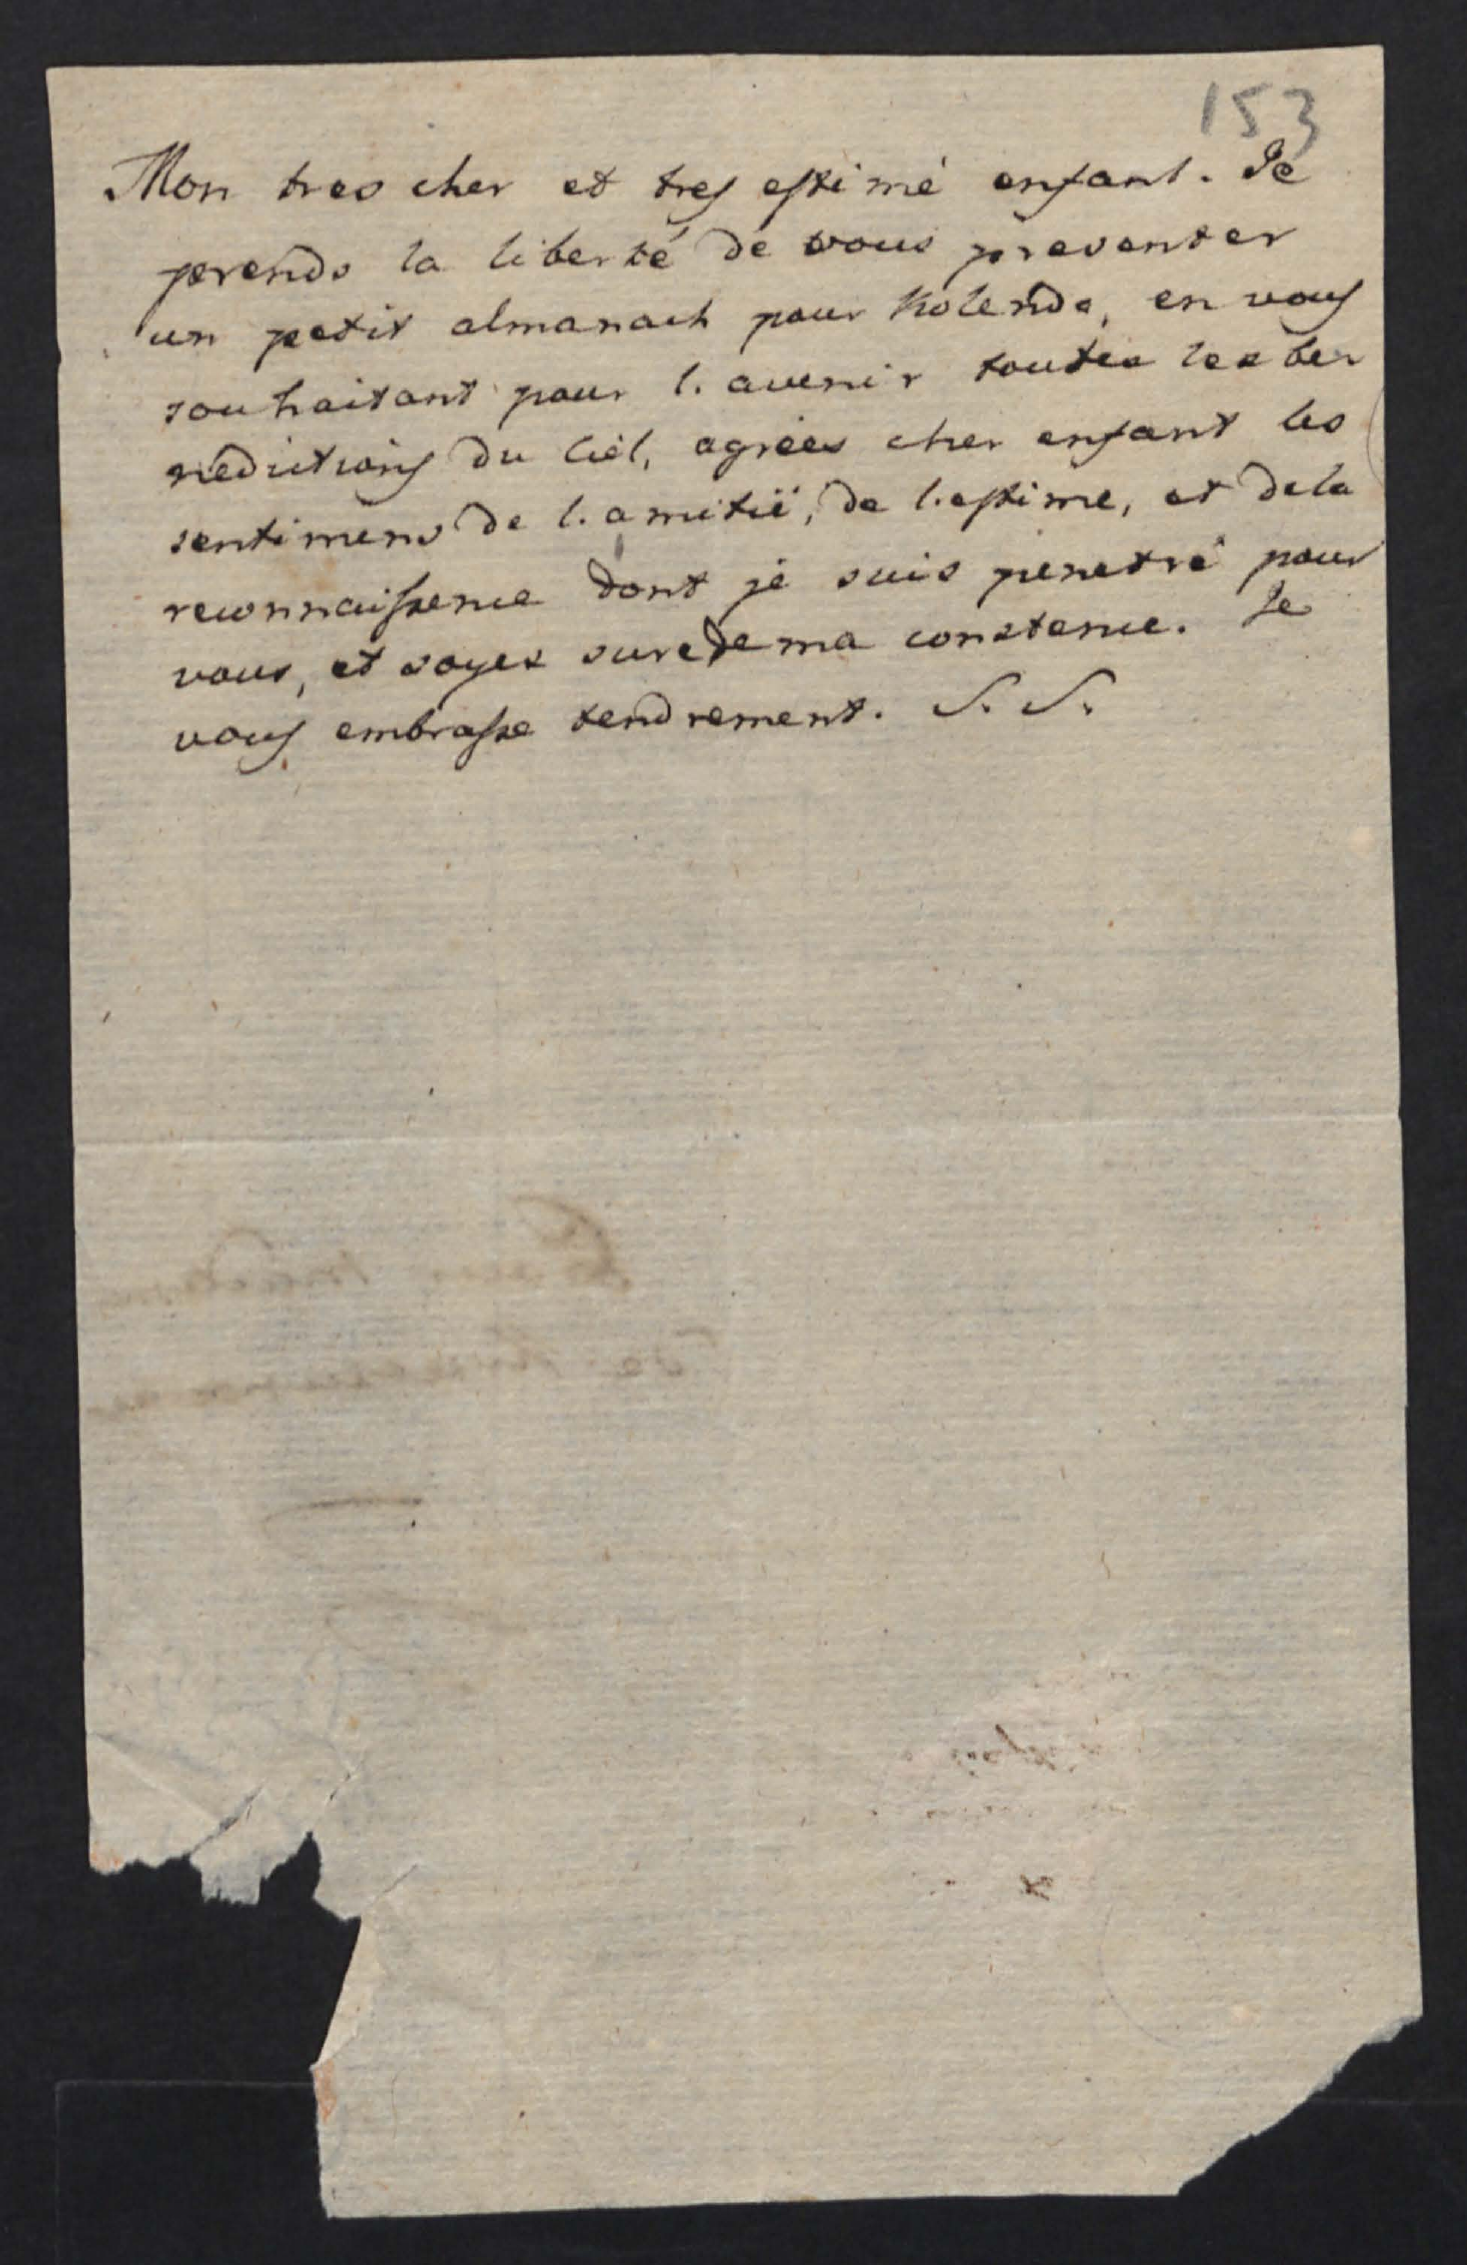 153
Mon tres cher et tres estimé enfant. Je
prends la liberté de vous presenter
un petit almanach pour Kolenda, en vous
souhaitant pour l. avenir toutes les ber
nedictions du Ciel, agrées cher enfant les
sentimens de l. amitié, de l. estime, et de la
reconnaissence dont je suis penetré pour
vous, et soyes sure de ma constence. Je
vous embrasse tendrement. S. S.